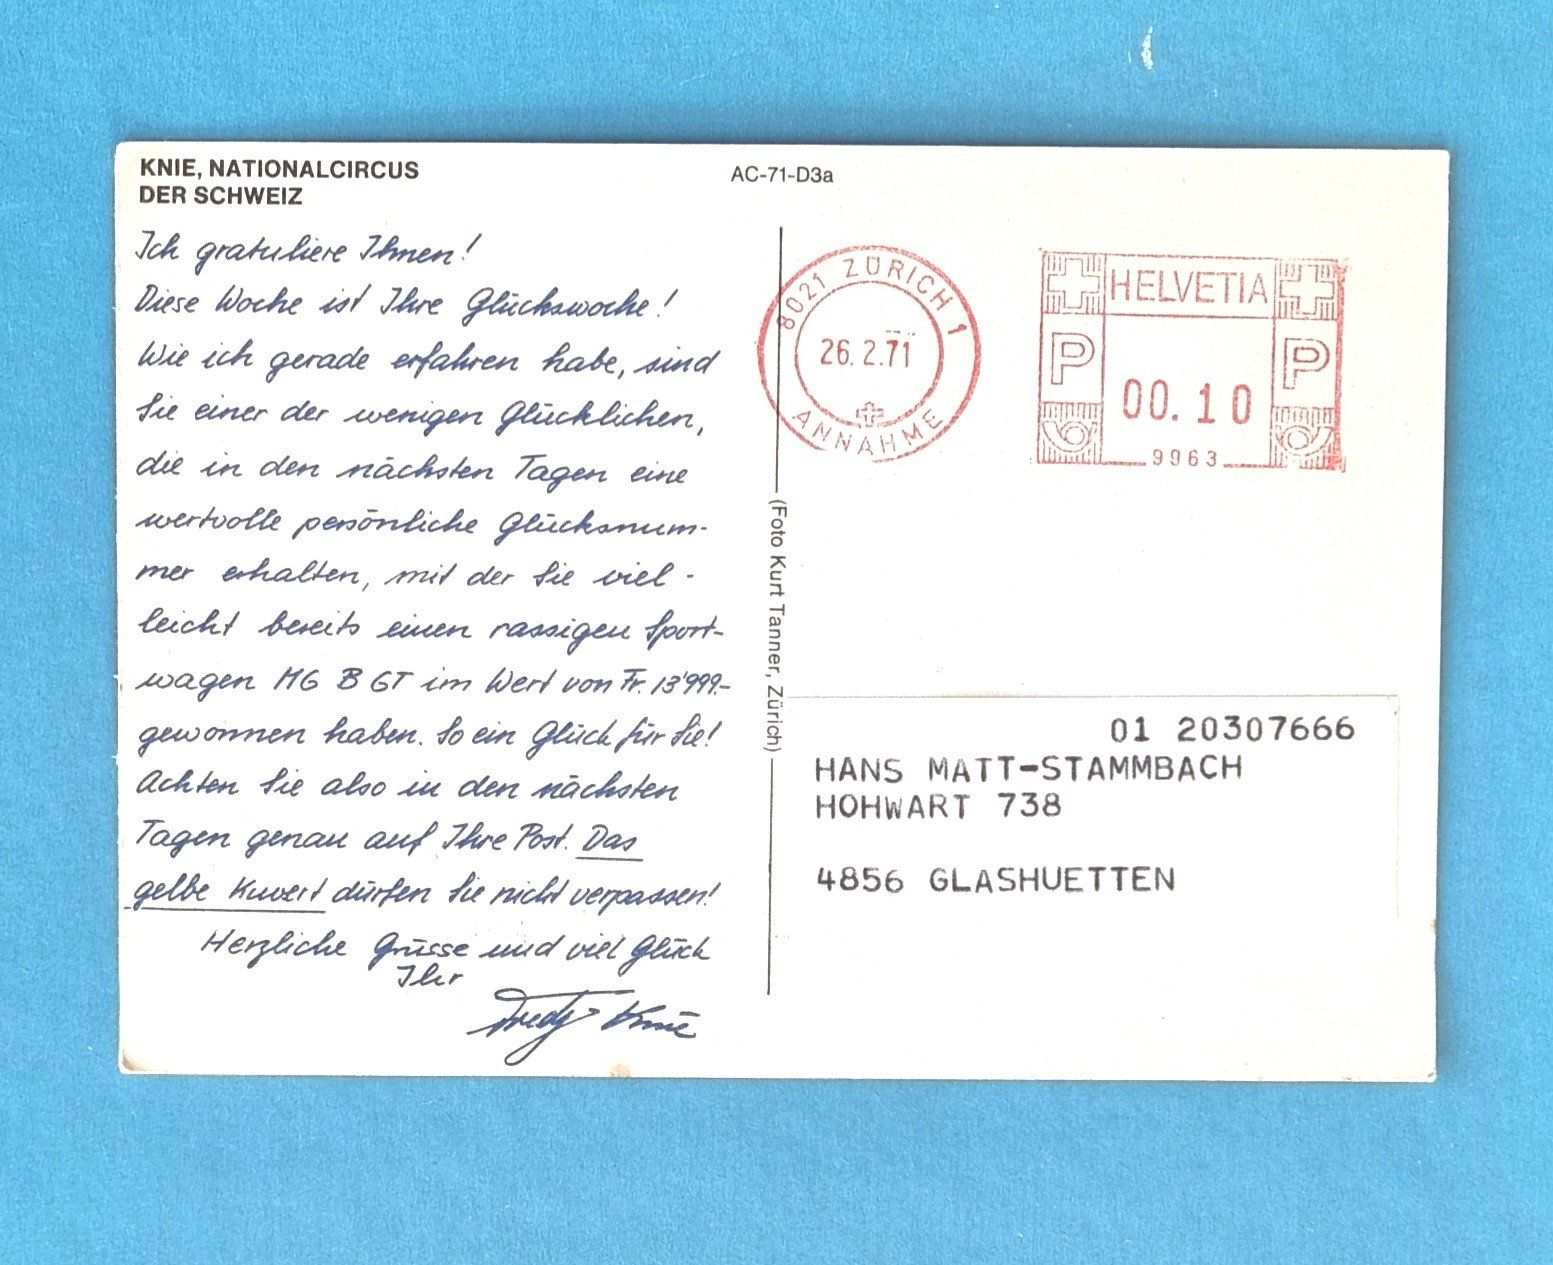 KNIE, NATIONALCIRCUS
DER SCHWEIZ
Ich gratuliere Ihnen!
Diese Woche ist Ihre Glückswoche!
Wie ich gerade erfahren habe, sind
Sie einer der wenigen Glücklichen,
die in den nächsten Tagen eine
wertvolle persönliche Glücksnum-
mer erhalten, mit der Sie viel-
leicht bereits einen rassigen Sport-
wagen MG B GT im Wert von Fr. 13'999.-
gewonnen haben. So ein Glück für Sie!
Achten Sie also in den nächsten
Tagen genau auf Ihre Post. Das
gelbe Kuvert dürfen Sie nicht verpassen!
Herzliche Grüsse und viel Glück
Ihr
Fredy Knie
AC-71-D3a
(Foto Kurt Tanner, Zürich)
8021 ZÜRICH 1
26.2.71
ANNAHME
HELVETIA
P P
00.10
9963
01 20307666
HANS MATT-STAMMBACH
HOHWART 738
4856 GLASHUETTEN